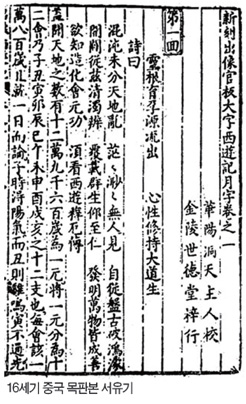 新刻出像官板大字西遊記月字卷之一
華陽洞天主人校
金陵世德堂梓行
第一回
靈根育孕源流出 心性修持大道生
詩曰
混沌未分天地亂 茫〻渺〻無人見 自從盤古破鴻濛
開闢從茲清濁辨 覆載群生仰至仁 發明萬物皆成善
欲知造化會元功 須看西遊釋厄傳
蓋聞天地之數有十二萬九千六百歲為一元將一元分為十
二會乃子丑寅卯辰巳午未申酉戌亥之十二支也每會該一
萬八百歲且就一日而論子時得陽氣而丑則雞鳴寅不通光
16세기 중국 목판본 서유기